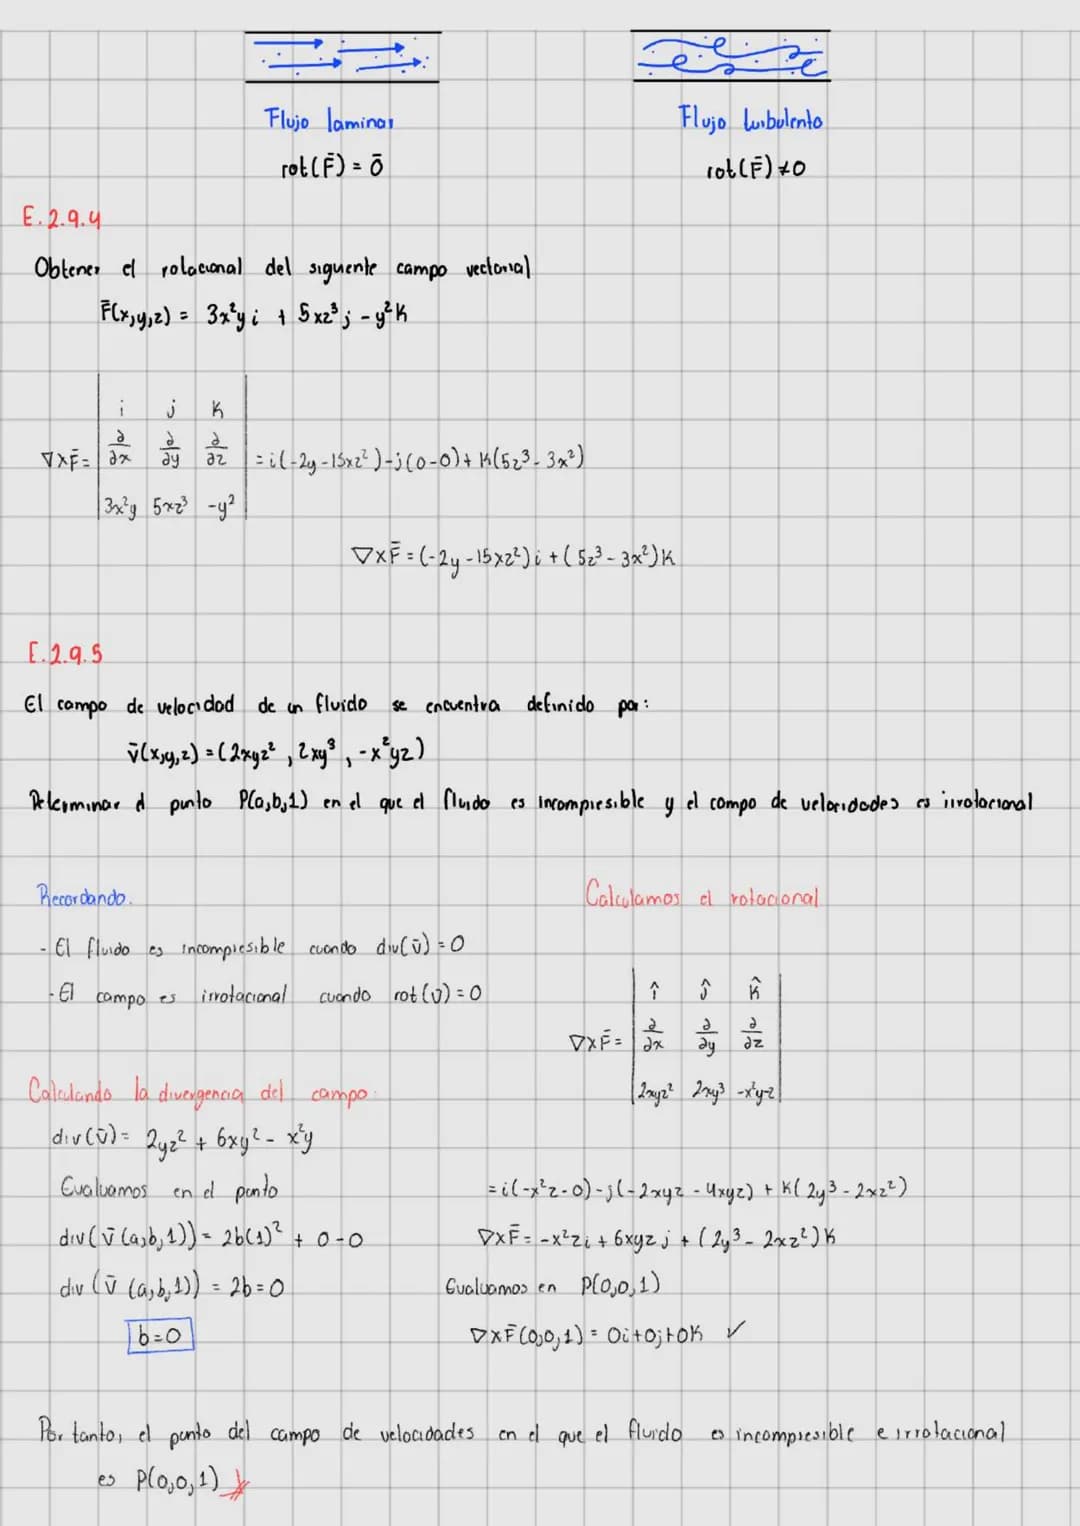 Flujo laminar
Flujo turbulento
rot(F̄) = 0̄
rot(F̄) ≠ 0
E.2.9.4
Obtener el rotacional del siguente campo vectorial
F̄(x,y,z) = 3x²y i + 5xz³ j - y² k
i j k
∇×F̄ = ∂/∂x ∂/∂y ∂/∂z = i(-2y - 15xz²) - j(0-0) + k(5z³ - 3x²)
3x²y 5xz³ -y²
∇×F̄ = (-2y - 15xz²) i + (5z³ - 3x²) k
E.2.9.5
El campo de velocidad de un fluido se encuentra definido por:
v̄(x,y,z) = (2xyz², 2xy³, -x²yz)
Determinar el punto P(a,b,1) en el que el fluido es incompresible y el campo de velocidades es irrotacional
Recordando.
- El fluido es incompresible cuando div(v̄) = 0
- El campo es irrotacional cuando rot(v̄) = 0
Calculando la divergencia del campo.
div(v̄) = 2yz² + 6xy² - x²y
Evaluamos en el punto
div(v̄(a,b,1)) = 2b(1)² + 0 - 0
div(v̄(a,b,1)) = 2b = 0
b = 0
Calculamos el rotacional
î ĵ k̂
∇×F̄ = ∂/∂x ∂/∂y ∂/∂z
2xyz² 2xy³ -x²yz
= i(-x²z - 0) - j(-2xyz - 4xyz) + k(2y³ - 2xz²)
∇×F̄ = -x²z i + 6xyz j + (2y³ - 2xz²) k
Evaluamos en P(0,0,1)
∇×F̄(0,0,1) = 0i + 0j + 0k ✓
Por tanto, el punto del campo de velocidades en el que el fluido es incompresible e irrotacional
es P(0,0,1)